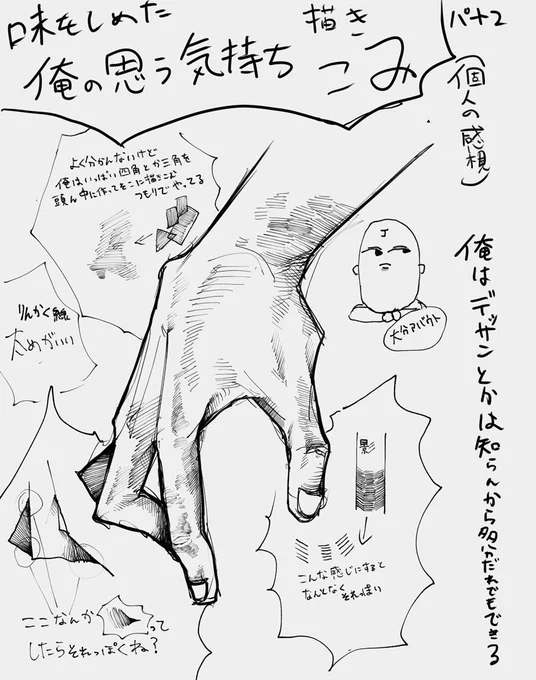 味をしめた
俺の思う気持ち
描き
こみ
パート2
(個人の感想)
俺はデッサンとかは知らんから多分だれでもできる
よく分かんないけど
俺はいっぱい四角とか三角を
頭ん中に作ってそこに描きこむ
つもりでやってる
りんかく線
太めがいい
J
大分アバウト
影
こんな感じにすると
なんとなく
それっぽい
ここなんか
って
したらそれっぽくね?